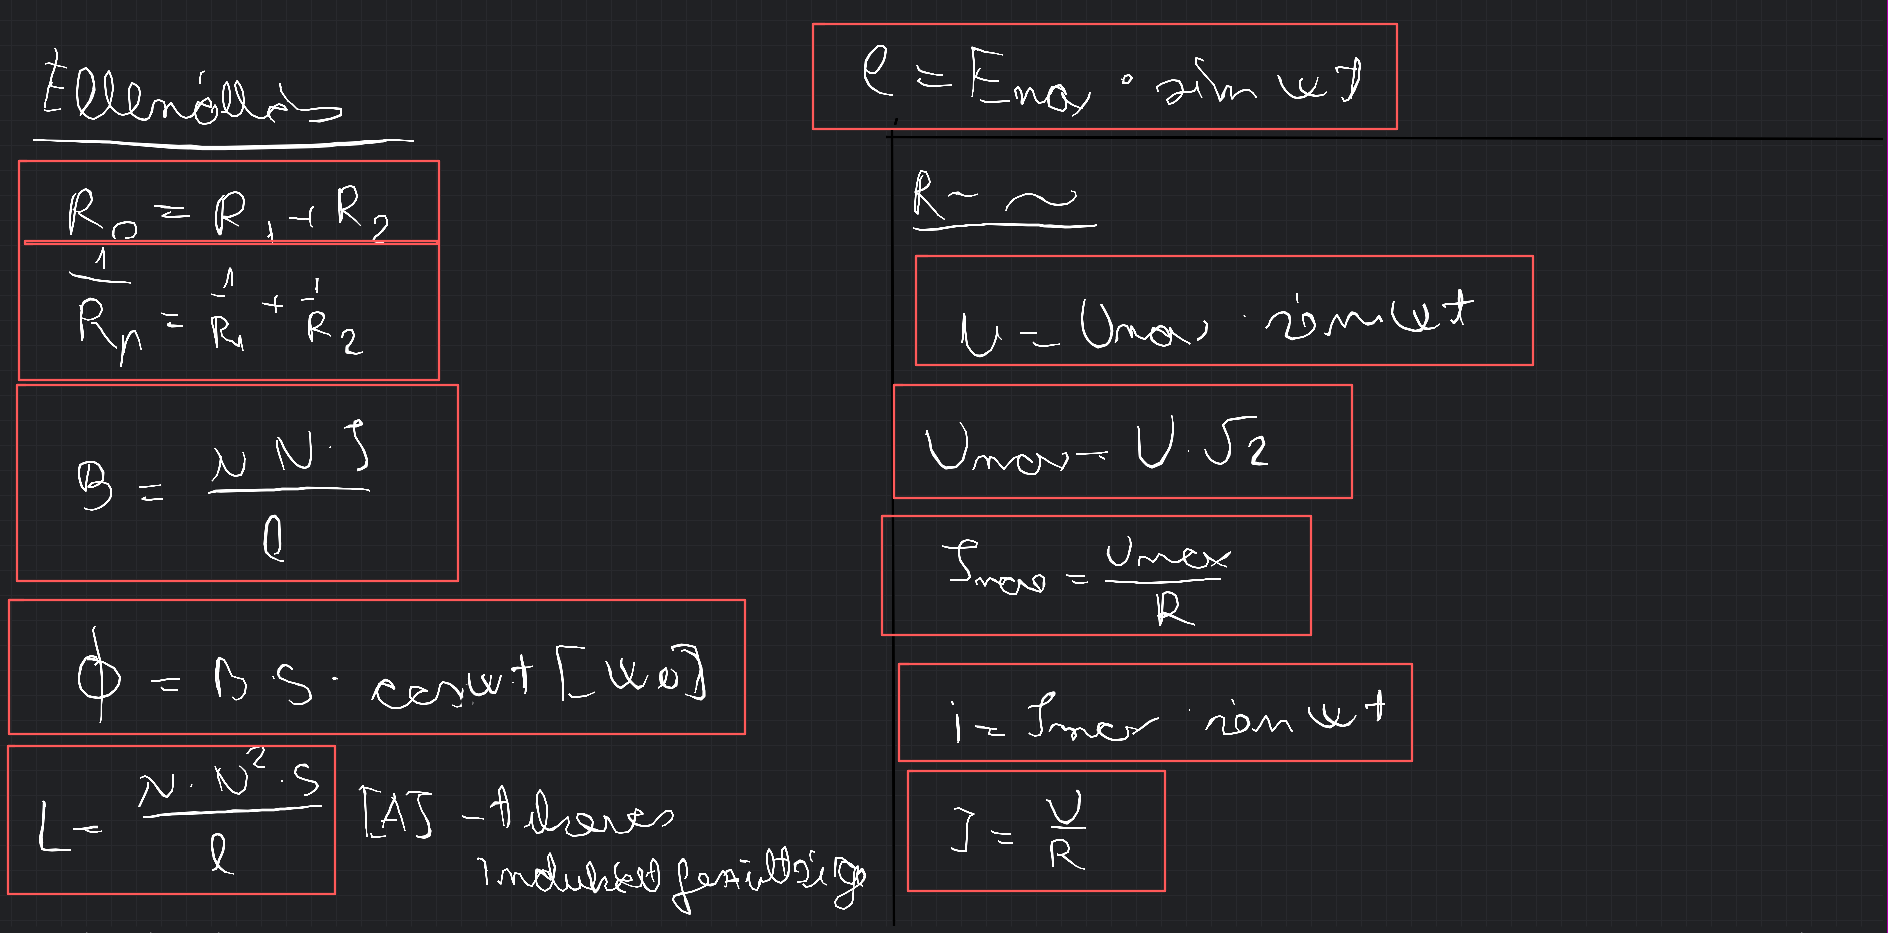 Ellenállás
R₀ = R₁ + R₂
1/Rp = 1/R₁ + 1/R₂
B = μ N · I / l
ϕ = B · S · cos ωt [Wb]
L = μ · N² · S / l [A] - tekercs
indukált feszültsége
e = Emax · sin ωt
R - ~
U = Umax · sin ωt
Umax = U · √2
Imax = Umax / R
i = Imax · sin ωt
I = U / R